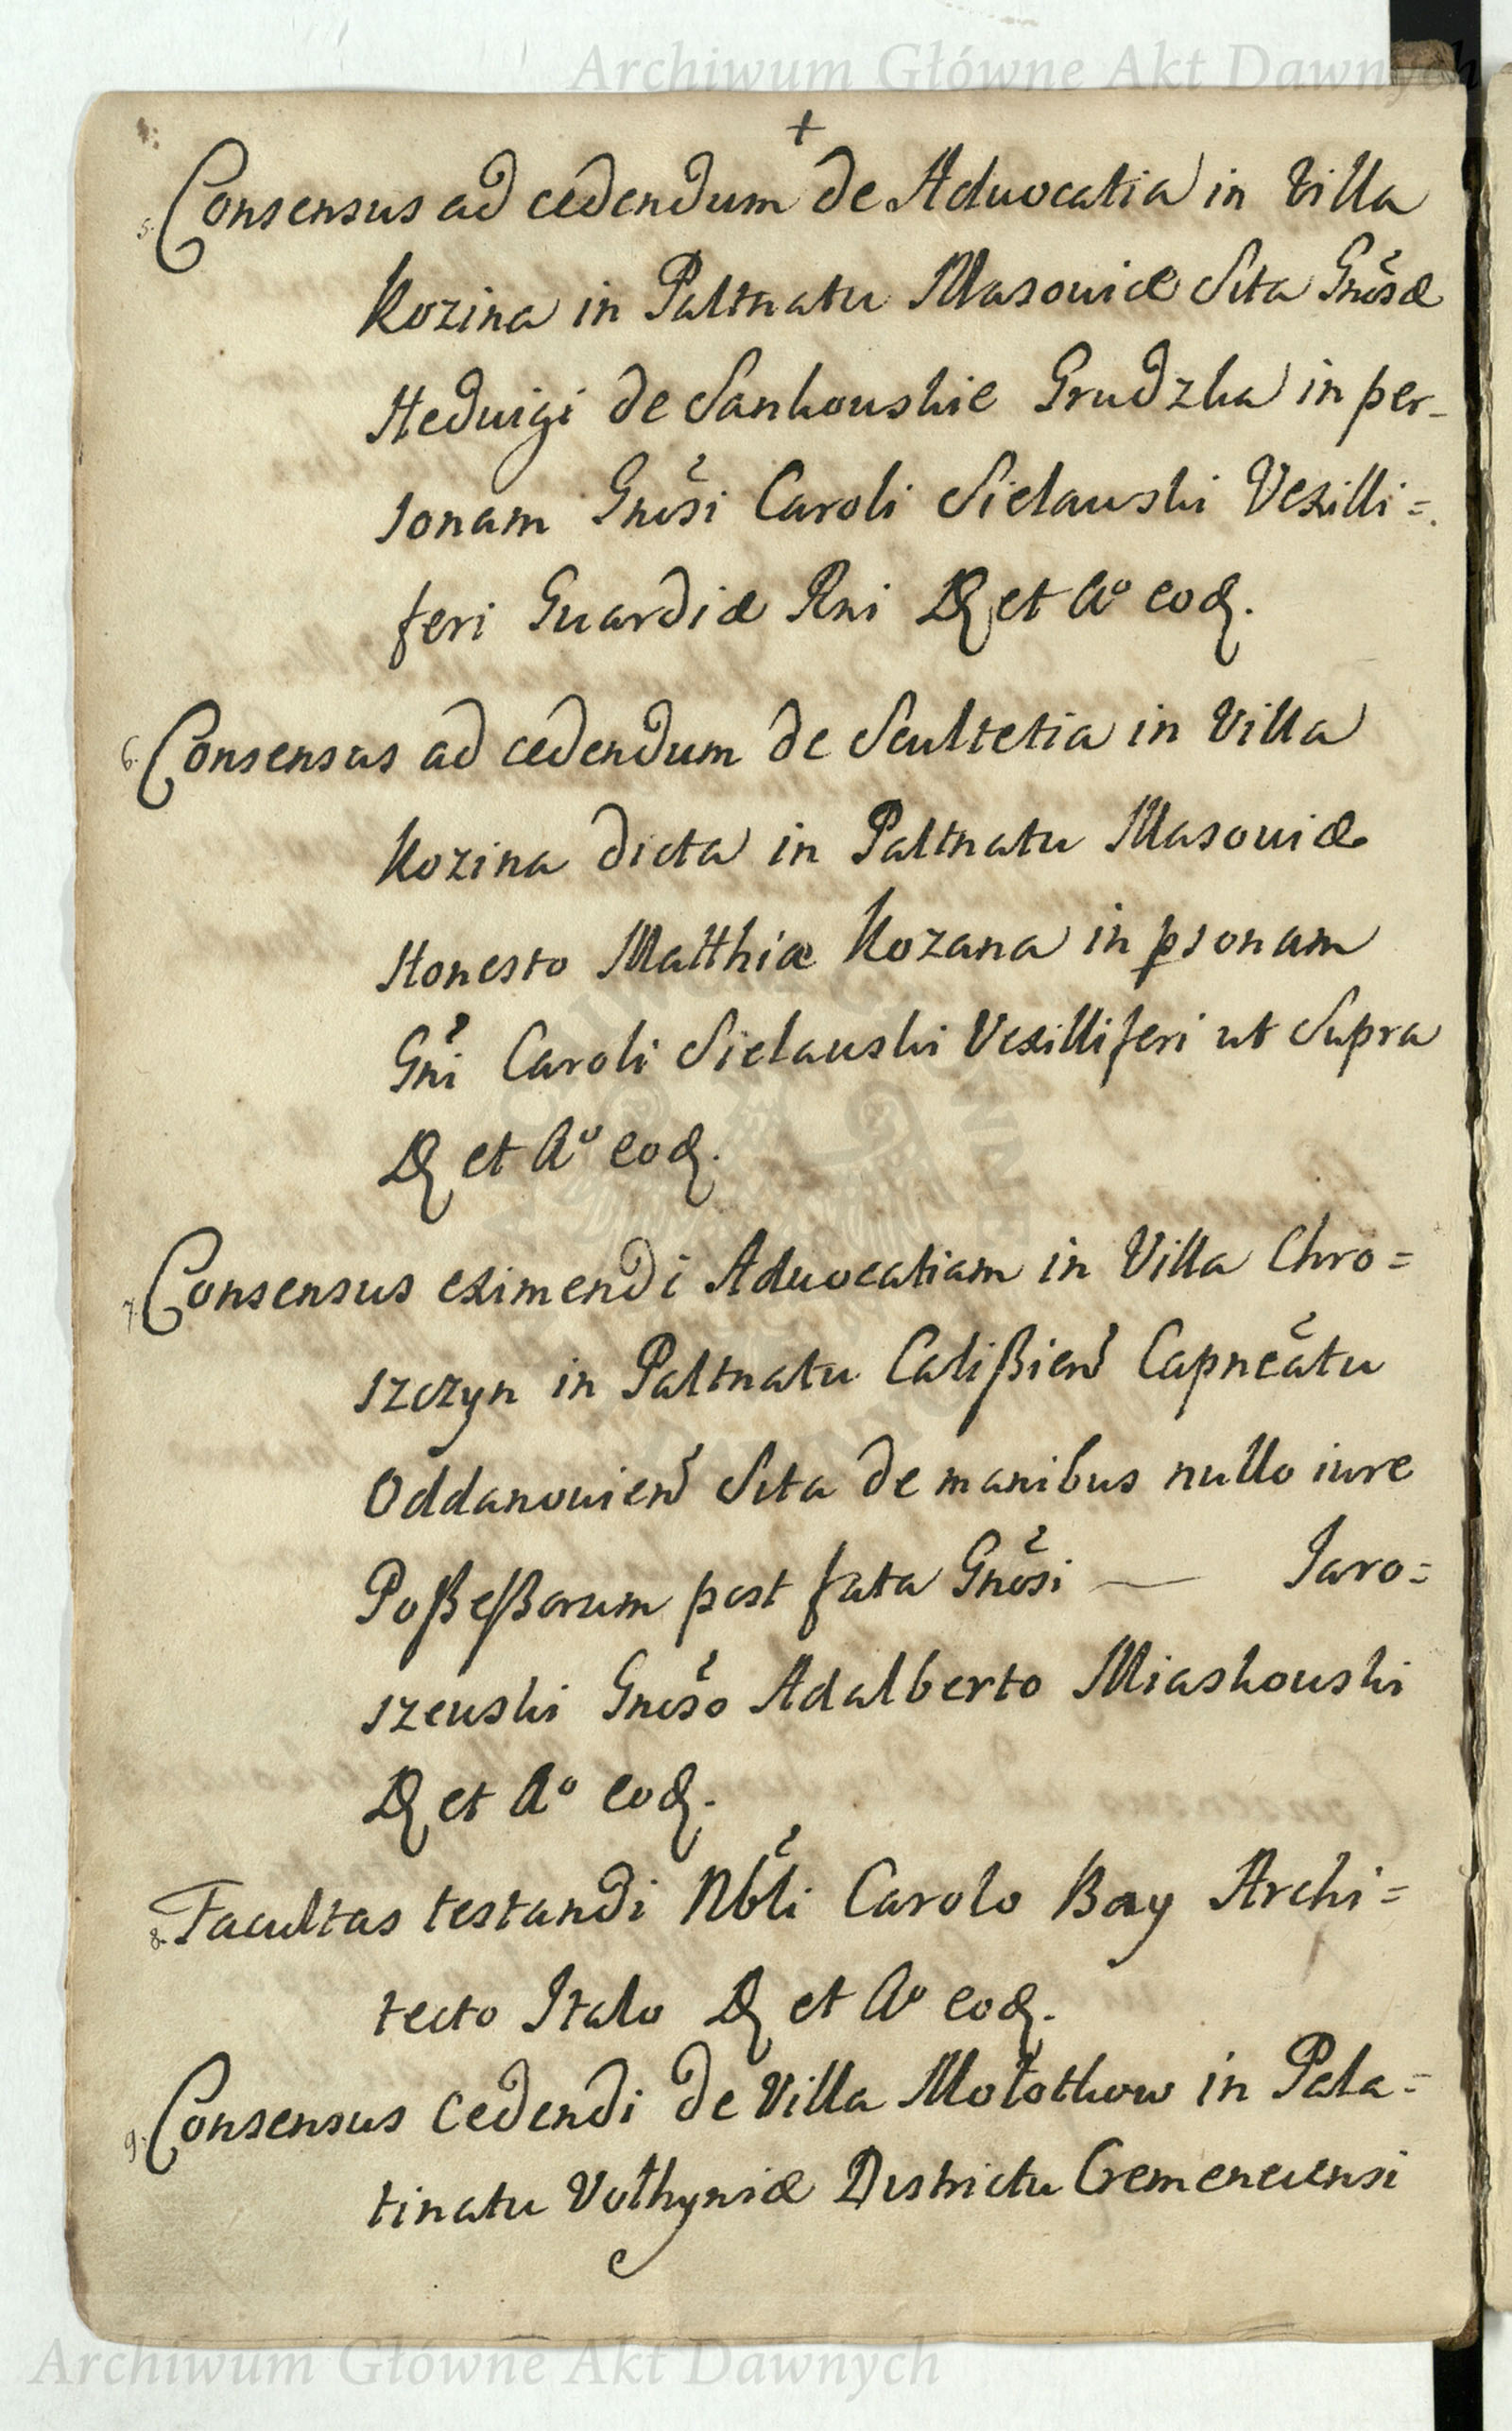 Archiwum Główne Akt Dawnych
+
5. Consensus ad cedendum de Advocatia in Villa
Kozina in Paltnatu Masoviæ Sita Gnosæ
Heduigi de Sankouskie Grudzka in per-
sonam Gnosi Caroli Sielauski Vexilli=
feri Guardiæ Rni D et Aº eod.
6. Consensus ad cedendum de Scultetia in Villa
Kozina dicta in Paltnatu Masouiæ
Honesto Matthiæ Kozana in psonam
Gni Caroli Sielauski Vexilliferi ut Supra
D et Aº eod.
7. Consensus eximendi Aduocatiam in Villa Chro=
szczyn in Paltnatu Calißien Capneatu
Oddanouien Sita de manibus nullo iure
Poßeßorum post fata Gnosi — Jaro=
szeuski Gnoso Adalberto Miaskouski
D et Aº eod.
8. Facultas testandi Nbli Carolo Bay Archi=
tecto Italo D et Aº eod.
9. Consensus cedendi de Villa Mołotkow in Pala=
tinatu Volhyniæ Districtu Cremenecensi
Archiwum Główne Akt Dawnych